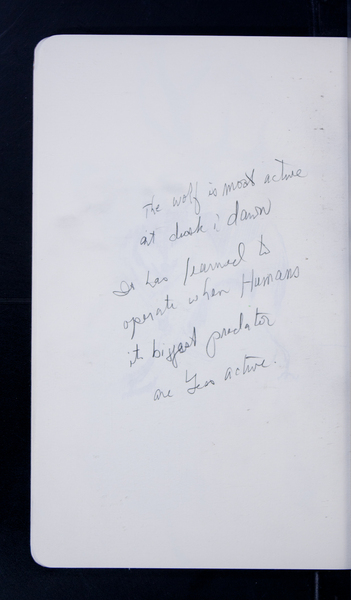 The wolf is most active
at dusk & dawn
It has learned to
operate when Humans
its biggest predator
are less active.